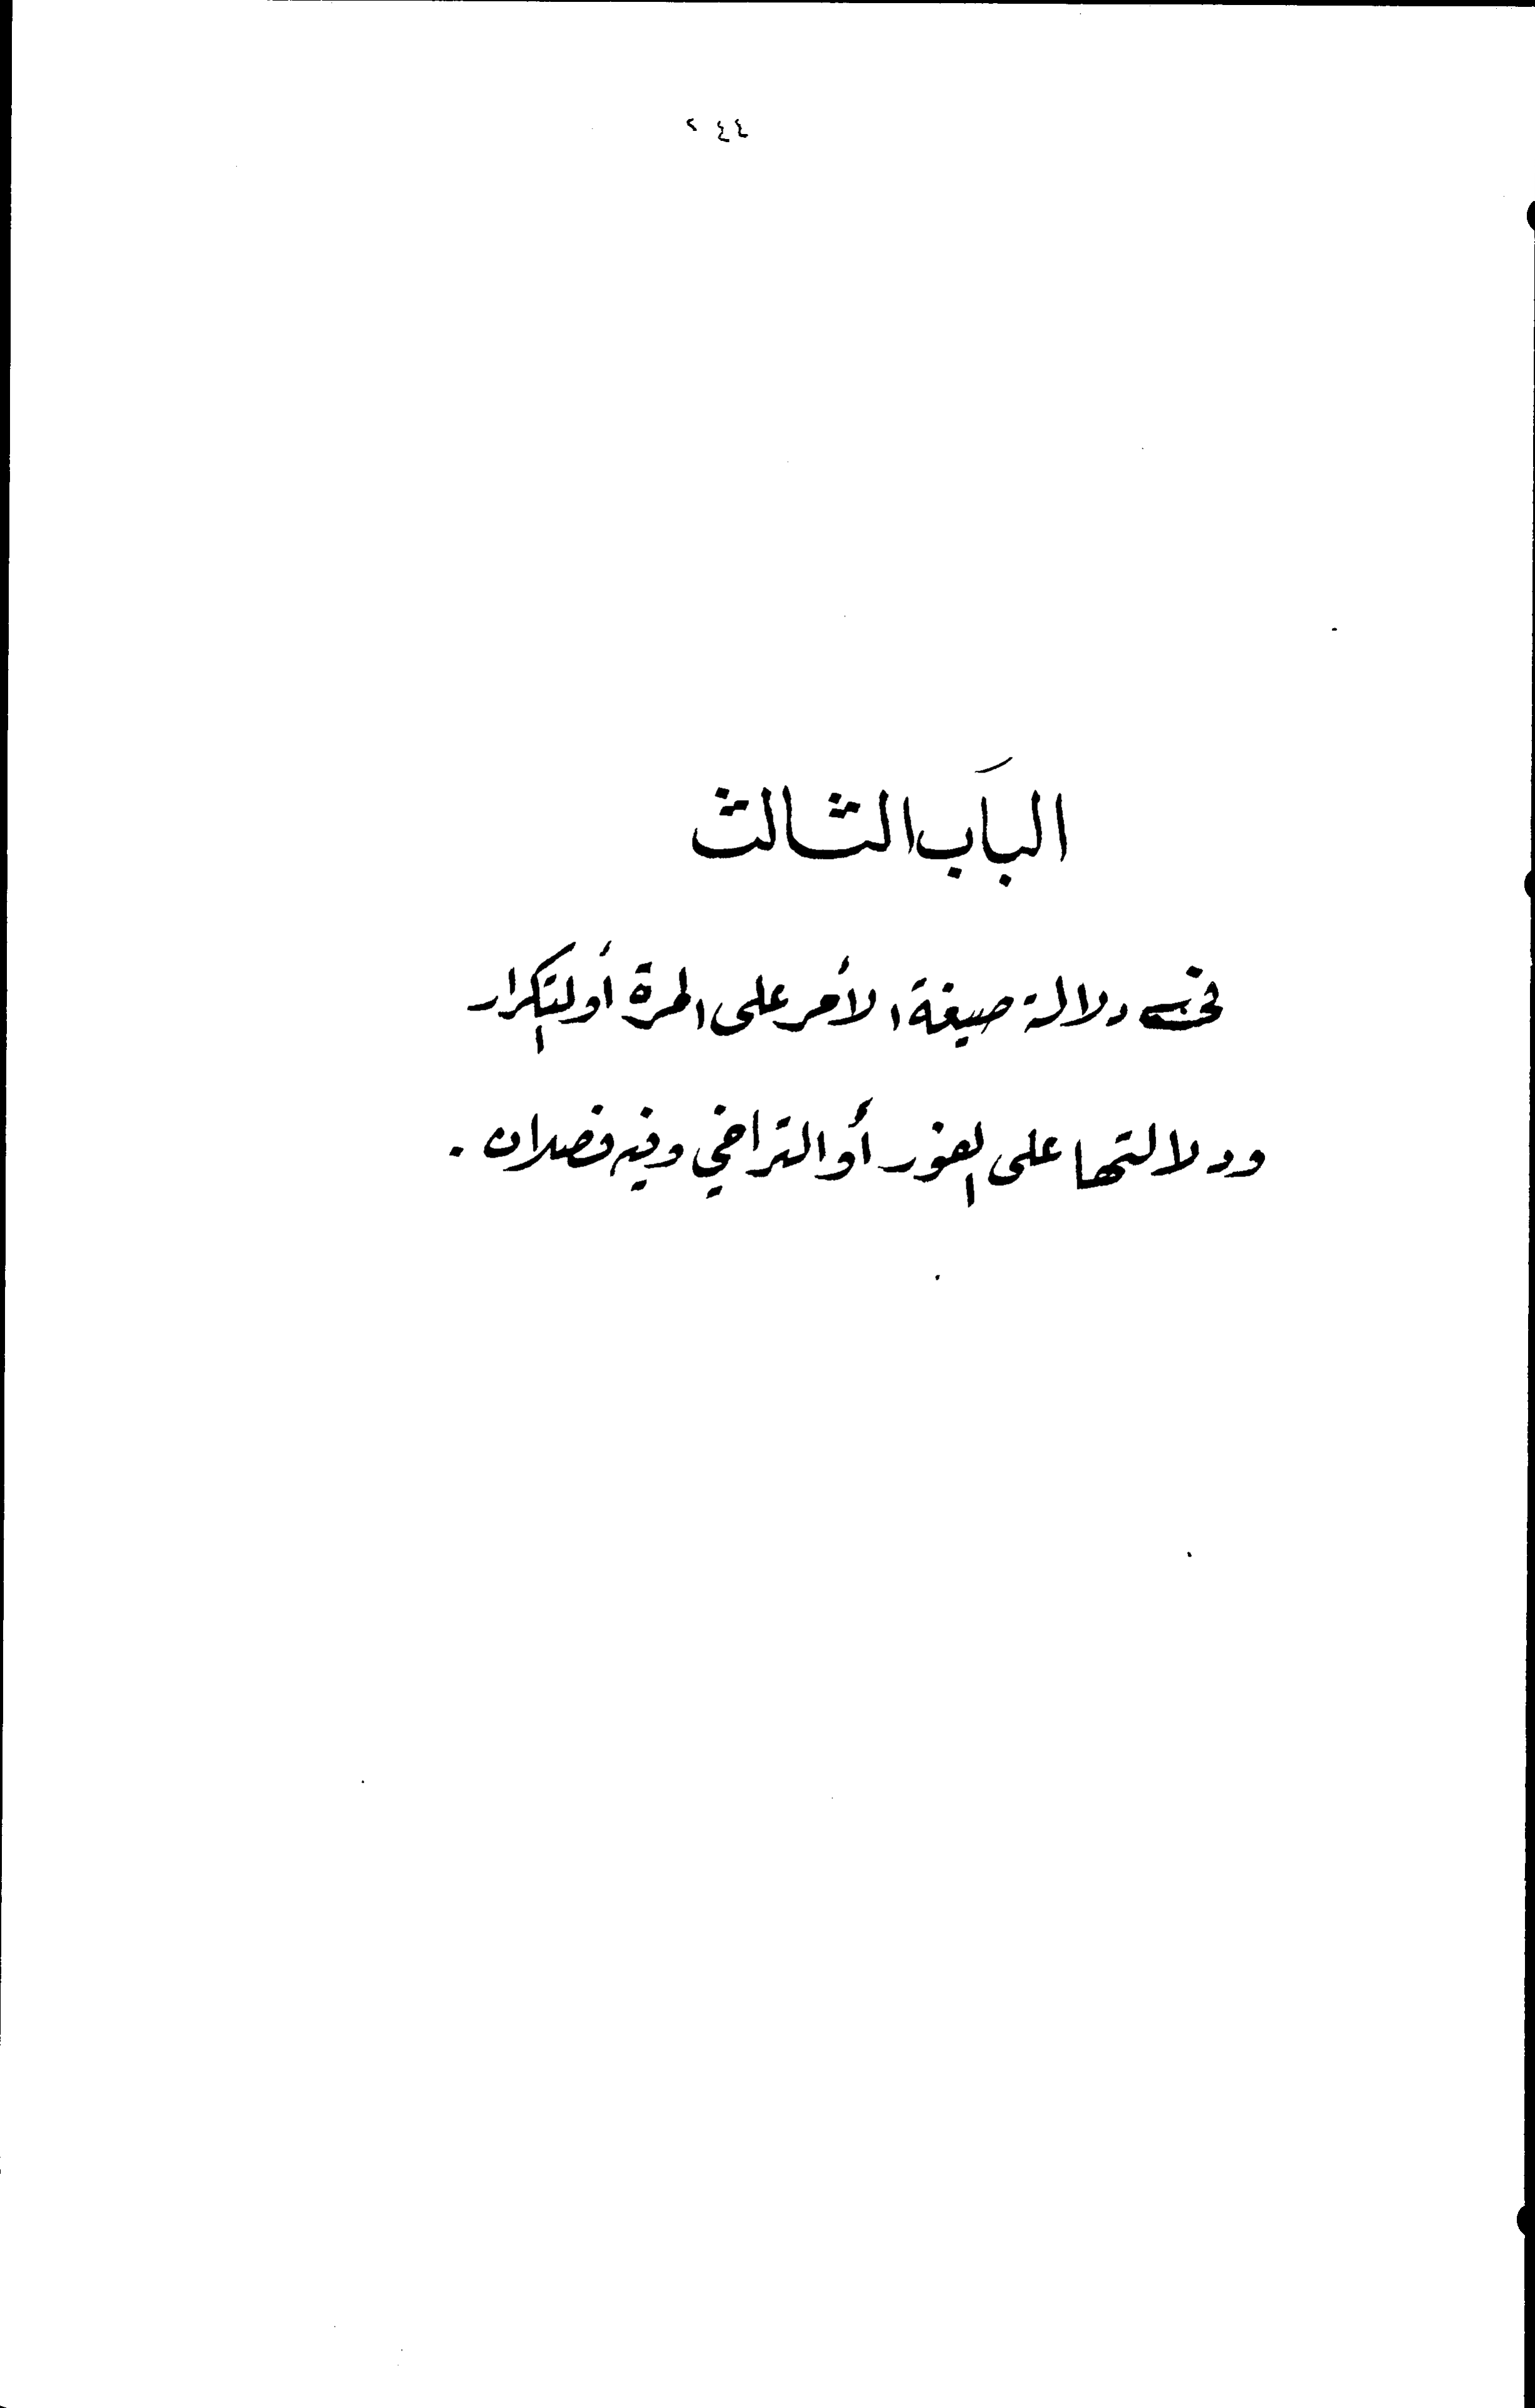 ٢٤٤
الباب الثالث
في دلالة صيغة الأمر على المرة أو التكرار
ودلالتها على الفور أو التراخي وفيه فصلان .